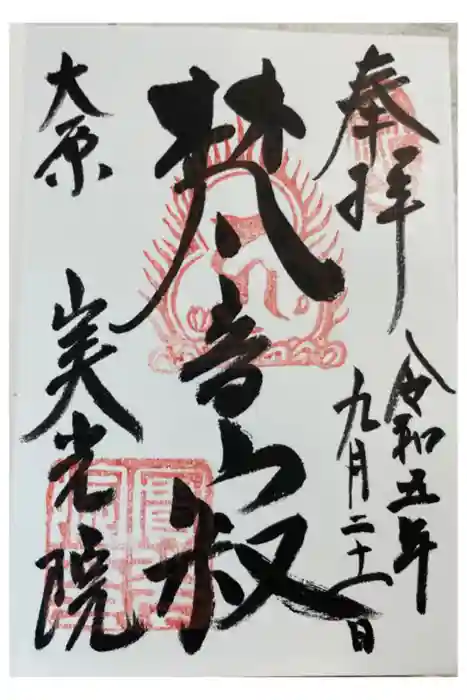 奉拝
令和五年
九月二十一日
梵音寂
大原
実光院